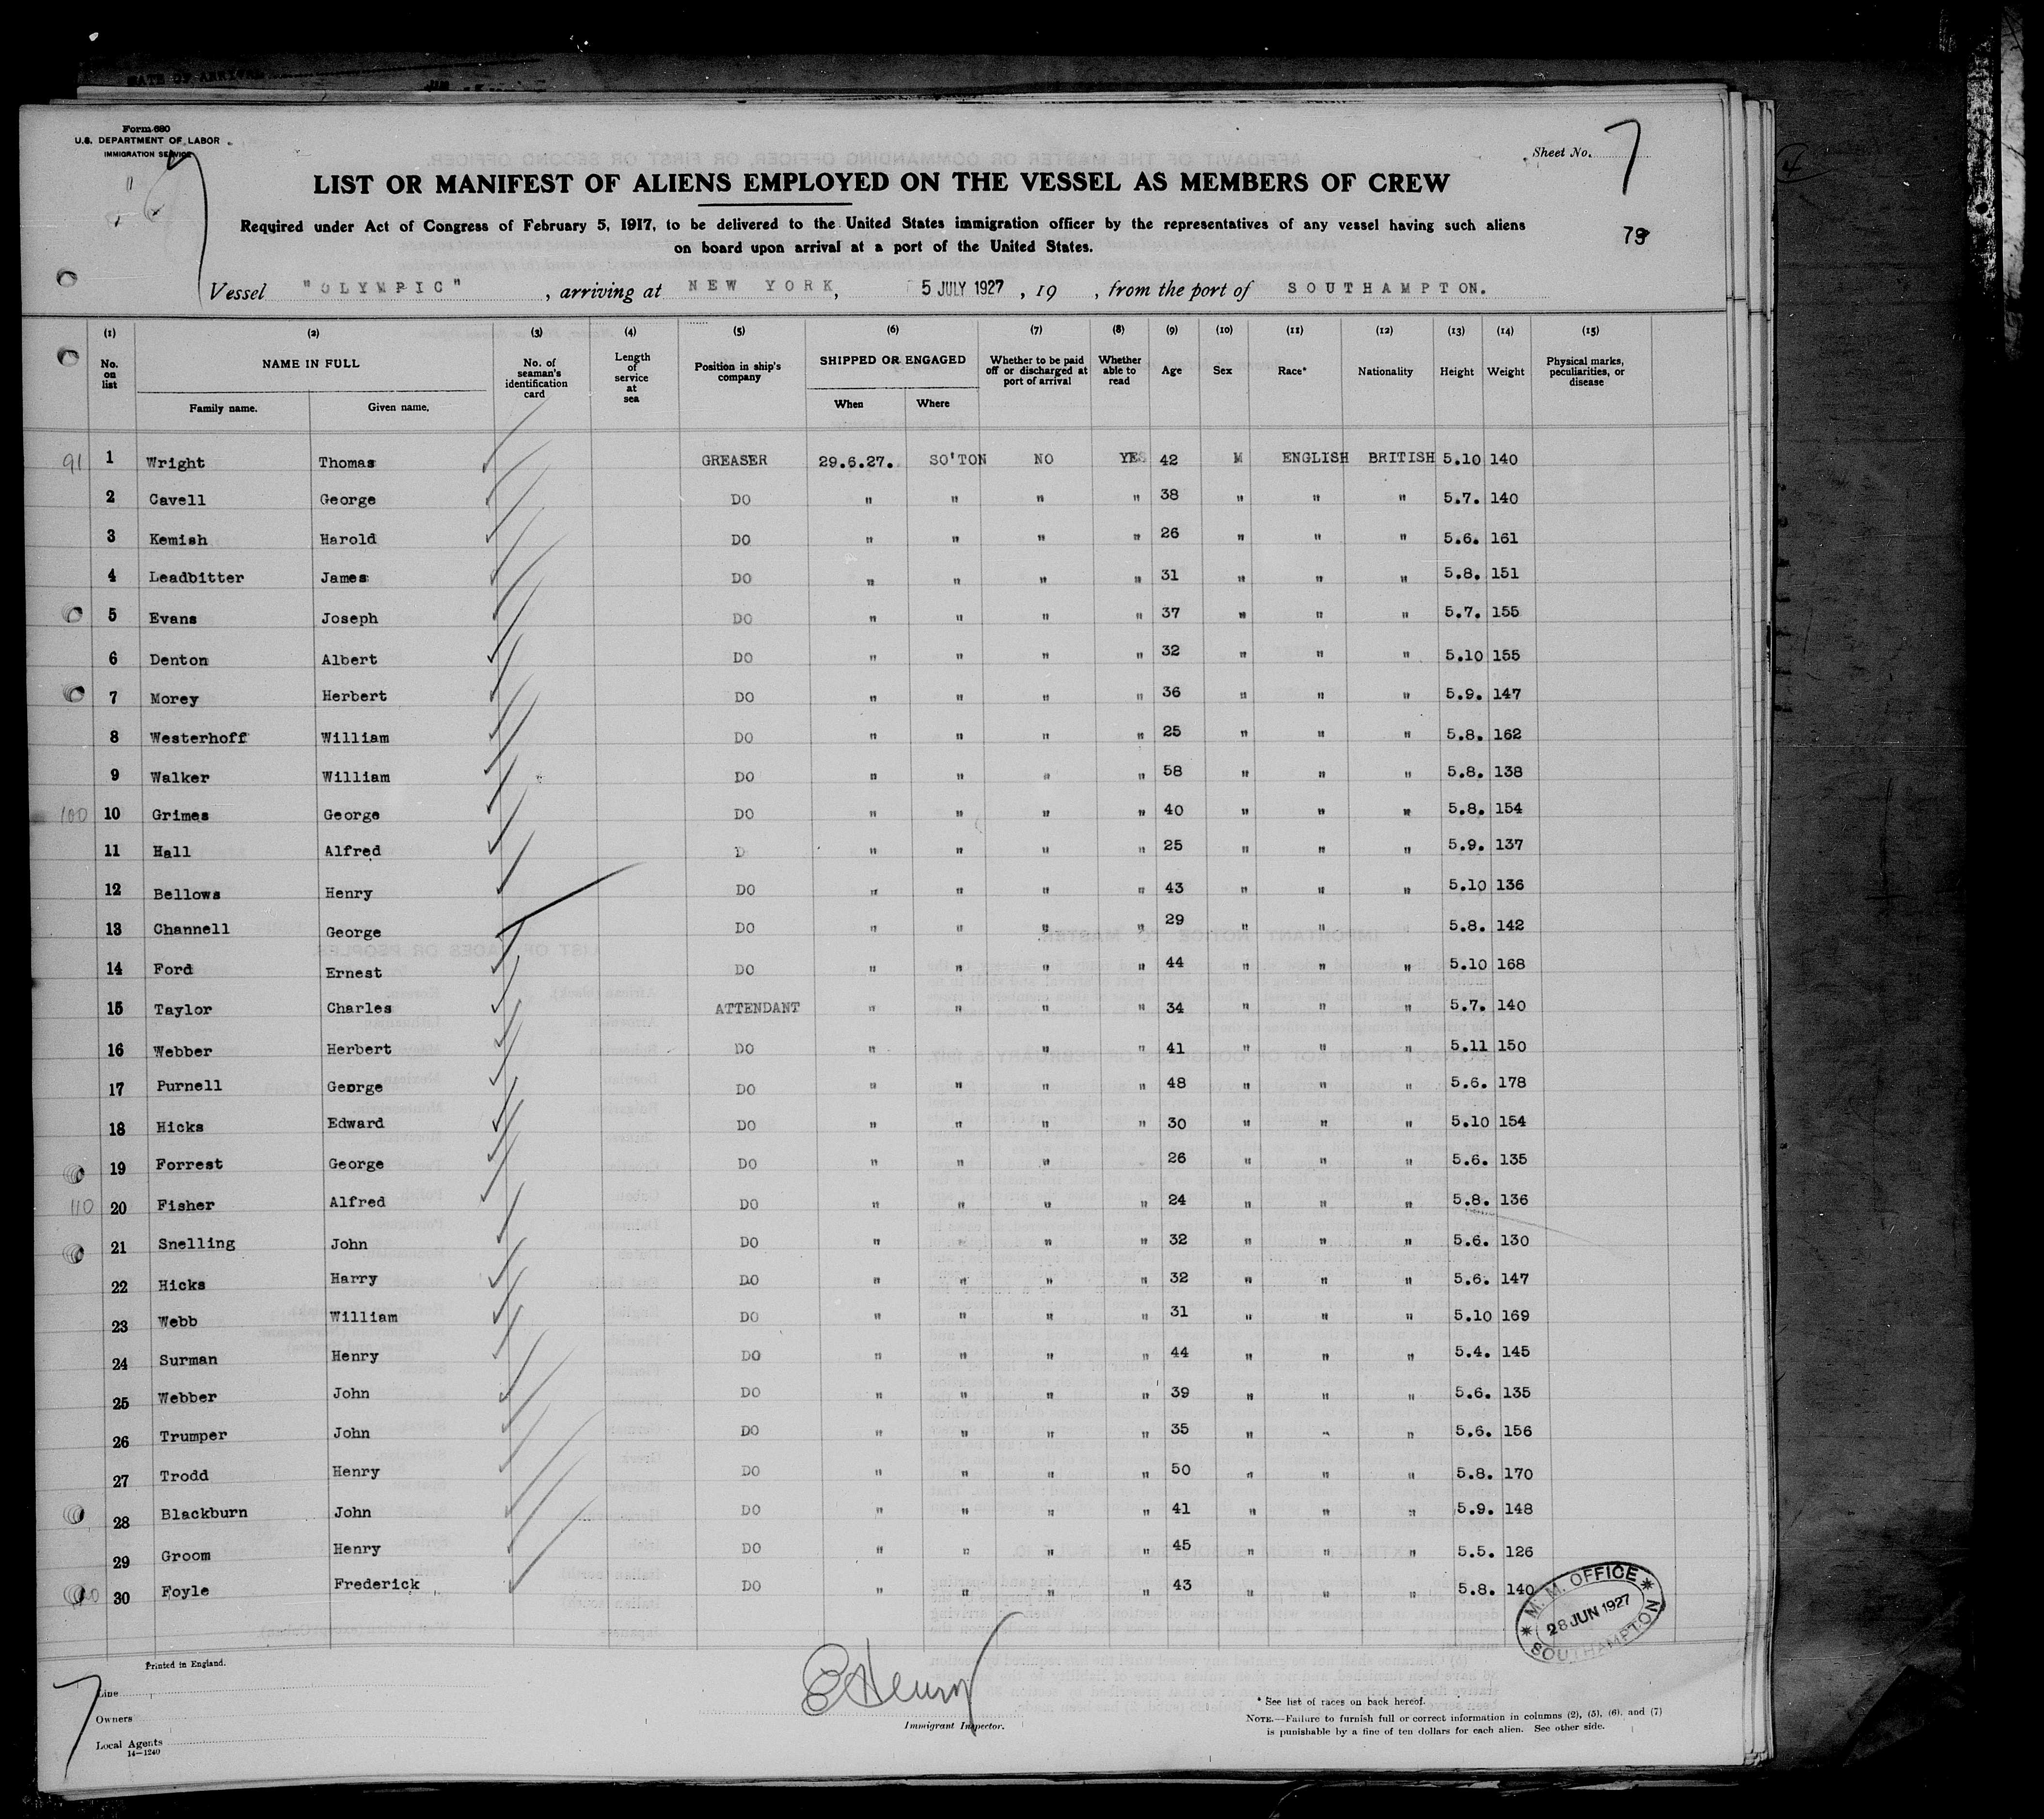 Form 680
U.S. DEPARTMENT OF LABOR
IMMIGRATION SERVICE
Sheet No. 7
LIST OR MANIFEST OF ALIENS EMPLOYED ON THE VESSEL AS MEMBERS OF CREW
Required under Act of Congress of February 5, 1917, to be delivered to the United States immigration officer by the representatives of any vessel having such aliens
on board upon arrival at a port of the United States.
79
Vessel "OLYMPIC", arriving at NEW YORK, 5 JULY 1927, 19 , from the port of SOUTHAMPTON.
(1) (2) (3) (4) (5) (6) (7) (8) (9) (10) (11) (12) (13) (14) (15)
No. on list NAME IN FULL No. of seaman's identification card Length of service at sea Position in ship's company SHIPPED OR ENGAGED Whether to be paid off or discharged at port of arrival Whether able to read Age Sex Race* Nationality Height Weight Physical marks, peculiarities, or disease
Family name. Given name. When Where
91 1 Wright Thomas GREASER 29.6.27. SO'TON NO YES 42 M ENGLISH BRITISH 5.10 140
2 Cavell George DO " " " " 38 " " " 5.7. 140
3 Kemish Harold DO " " " " 26 " " " 5.6. 161
4 Leadbitter James DO " " " " 31 " " " 5.8. 151
5 Evans Joseph DO " " " " 37 " " " 5.7. 155
6 Denton Albert DO " " " " 32 " " " 5.10 155
7 Morey Herbert DO " " " " 36 " " " 5.9. 147
8 Westerhoff William DO " " " " 25 " " " 5.8. 162
9 Walker William DO " " " " 58 " " " 5.8. 138
100 10 Grimes George DO " " " " 40 " " " 5.8. 154
11 Hall Alfred D " " " " 25 " " " 5.9. 137
12 Bellows Henry DO " " " " 43 " " " 5.10 136
13 Channell George DO " " " " 29 " " 5.8. 142
14 Ford Ernest DO " " " " 44 " " " 5.10 168
15 Taylor Charles ATTENDANT " " " " 34 " " " 5.7. 140
16 Webber Herbert DO " " " 41 " " " 5.11 150
17 Purnell George DO " " " " 48 " " " 5.6. 178
18 Hicks Edward DO " " " " 30 " " " 5.10 154
19 Forrest George DO " " " 26 " " " 5.6. 135
110 20 Fisher Alfred DO " " " " 24 " " " 5.8. 136
21 Snelling John DO " " " " 32 " " " 5.6. 130
22 Hicks Harry DO " " " " 32 " " " 5.6. 147
23 Webb William DO " " " " 31 " " " 5.10 169
24 Surman Henry DO " " " " 44 " " " 5.4. 145
25 Webber John DO " " " " 39 " " " 5.6. 135
26 Trumper John DO " " " " 35 " " " 5.6. 156
27 Trodd Henry DO " " " " 50 " " " 5.8. 170
28 Blackburn John DO " " " " 41 " " " 5.9. 148
29 Groom Henry DO " " " " 45 " " " 5.5. 126
30 Foyle Frederick DO " " " " 43 " " " 5.8. 140
M. M. OFFICE
28 JUN 1927
SOUTHAMPTON
Printed in England.
7
Line
Owners
Local Agents
14-1240
E Henry
Immigrant Inspector.
* See list of races on back hereof.
NOTE.—Failure to furnish full or correct information in columns (2), (5), (6), and (7)
is punishable by a fine of ten dollars for each alien. See other side.